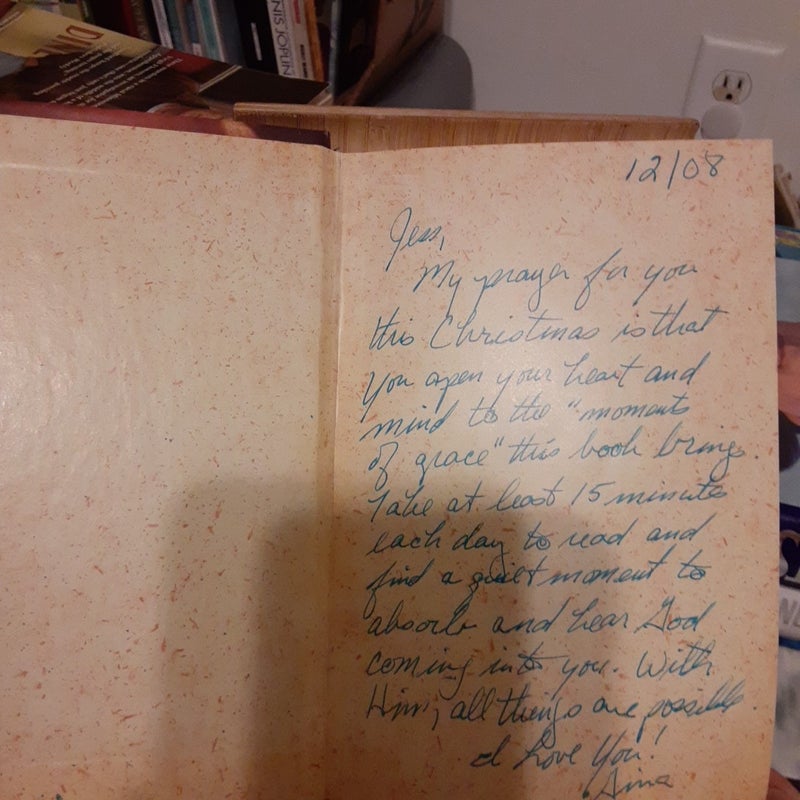 NIS JOPLIN
DINE
12/08
Jess,
My prayer for you
this Christmas is that
you open your heart and
mind to the "moments
of grace" this book brings.
Take at least 15 minutes
each day to read and
find a quiet moment to
absorb and hear God
coming into you. With
Him, all things are possible
I Love You!